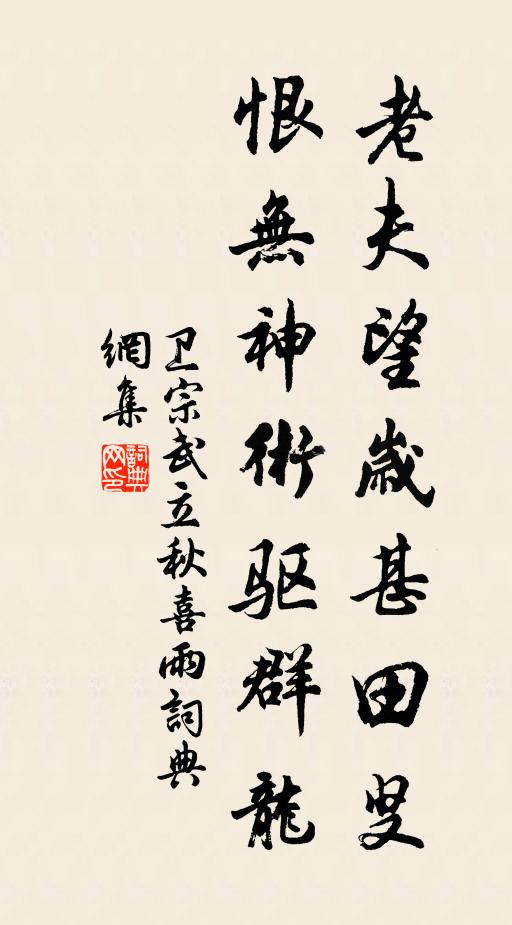 老夫望歲甚田叟
恨無神術驱群龍
卫宗武立秋喜雨詞典
網集
詞典
网印